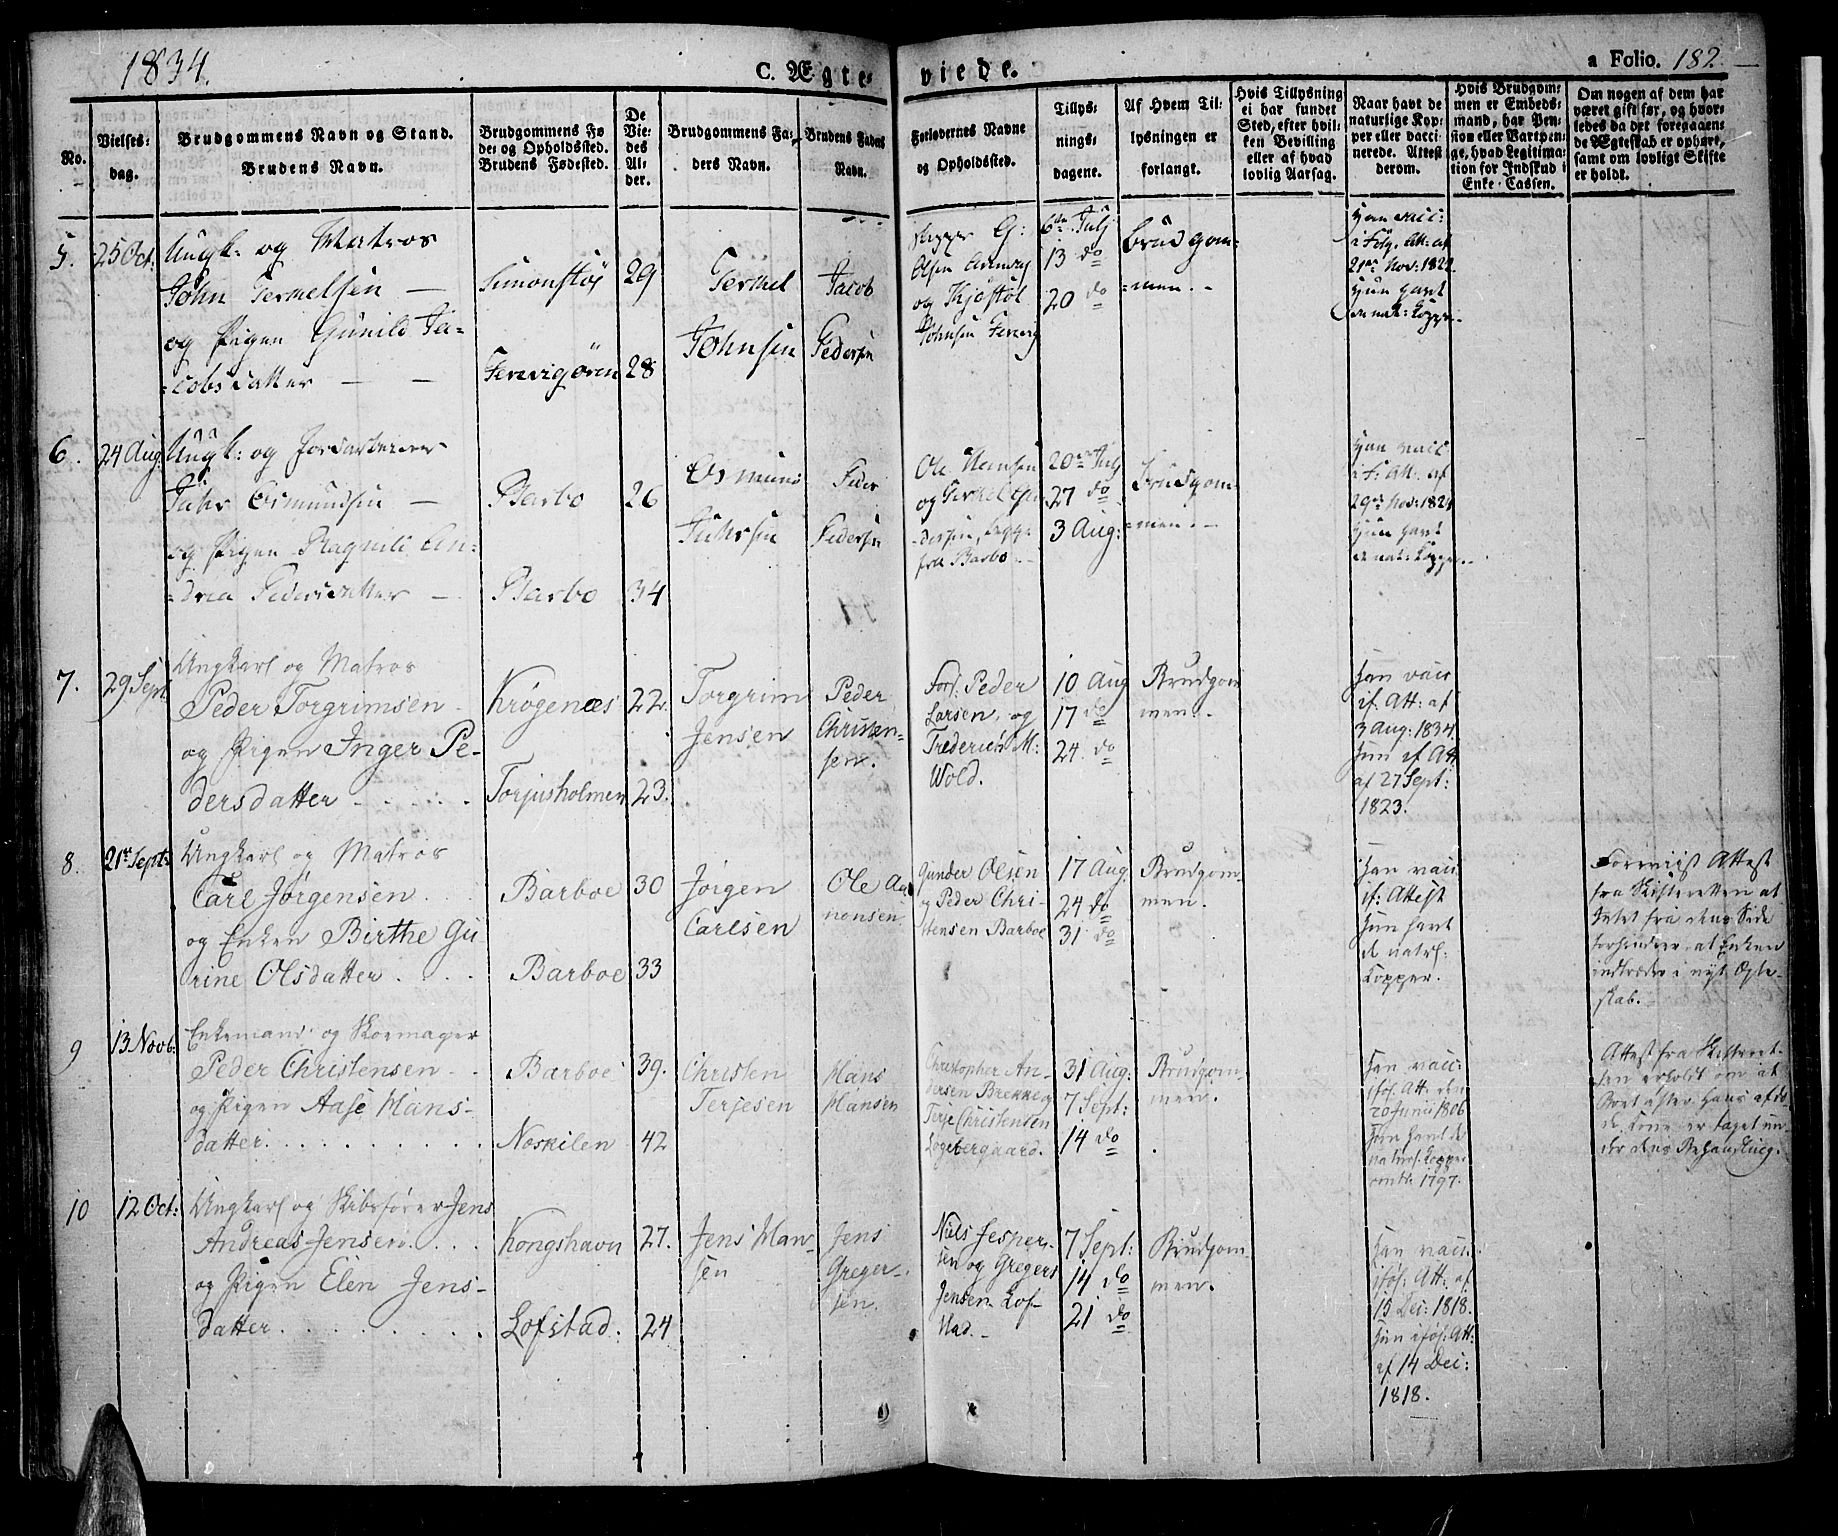 1834.
C. Ægte-
viede.
a Folio. 182.
No.
Vielses-
dag.
Brudgommens Navn og Stand.
Brudens Navn.
Brudgommens Fø
de- og Opholdssted.
Brudens Fødested.
De
Vie-
des
Al-
der.
Brudgommens Fa-
ders Navn.
Brudens Faders
Navn.
Forlovernes Navne
og Opholdssted.
Tillys-
nings-
dagene.
Af Hvem Til-
lysningen er
forlangt.
Hvis Tillysning
ei har fundet
Sted, efter hvil-
ken Bevilling
eller af hvad
lovlig Aarsag.
Naar havt de
naturlige Kop-
per eller vacci-
nerede. Attest
derom.
Hvis Brudgom-
men er Embeds-
mand, har Pen-
sion eller Vartpen-
ge, hvad Legitima-
tion for Indskud i
Enke-Cassen.
Om nogen af dem har
været gift før, og hvor-
ledes da det foregaaen-
de Ægteskab er ophørt,
samt om lovligt Skifte
er holdt.
5.
25 Oct:
Ungk: og Matros
John Terkelsen —
og Pigen Gunild Ja-
=cobsdatter — —
Simonstøj
29
28
Terkel
Johnsen
Jacob
Pedersen
Olsen
og Kjøstol
Johnsen
6te Julj
13 do
20 do
Brudgom-
=men. -
Han vacc:
i Følg. Att: af
21de Nov: 1822.
Hun havt
de nat: Kopper.
6.
24 Aug:
Ungk: og
Juhs Osmundsen —
og Pigen Ragnild An-
=drea Pedersdatter —
Barbo
26
Barbo
34
Osmund
Juhssen
Peder
Pedersen
Ole Hansen
og Terkel
dersen,
Barbo.
20de Julj
27 do
3 Aug:
Brudgom-
=men. -
Han vacc
i F. Att. af
29de Nov: 1821
Hun havt
de nat: Kopper.
7.
29 Sept:
Ungkarl og Matros
Peder Torgrimsen -
og Pigen Inger Pe-
dersdatter . . . . .
Krøgenæs
22.
Torjusholmen
23.
Torgrim
Jensen
Peder
Christen-
sen.
Peder
Larsen, og
Frederich M:
Wold.
10 Aug
17 do
24. do
Brudgom
men.
Han vacc
if. Att: af
3 Aug: 1834.
Hun if Att:
af 27 Sept:
1823.
8.
21de Sept:
Ungkarl og Matros
Carl Jørgensen . .
og Enken Birthe Gu
rine Olsdatter . . .
Barboe
30
Barboe
33
Jørgen
Carlsen
Ole Aa
nonsen
Gunder Olsen
og Peder Chri-
stensen Barboe
17 Aug
24 do
31 do
Brudgom-
men.
Han vacc
if: Attest
Hun havt
de naturl:
Kopper.
Forevist Attest
fra Skifteretten at
Intet fra dens Side
forhindrer at Enken
indtræder i nyt Ægte-
skab. -
9
13 Novb:
Enkemand og Skoemager
Peder Christensen . .
og Pigen Aase Hans-
datter. . . . . . . .
Barboe
39.
Noskilen
42
Christen
Terjesen
Hans
Hansen
Christopher An-
dersen Brekke og
Terje Christensen
Løgebergaard.
31 Aug:
7 Sept:
14 do
Brudgom-
men.
Han vacc:
iføl: Att: den
20 Junii 1806
Hun havt de
naturl. Kopper
omtr. 1797.
Attest fra Skifteret-
ten erholdt om at
Boet efter Hans afdø-
de Kone er taget un-
der dens Behandling.
10
12 Oct:
Ungkarl og Skibsfører Jens
Andreas Jensen. . . .
og Pigen Elen Jens-
datter. . . . . . . .
Kongshavn
27.
Lofstad.
24
Jens Han-
sen
Jens
Greger-
sen.
Niels Jesper-
sen og Gregers
Jensen Lof-
stad. -
7 Sept:
14 do
21 do
Brudgom-
men.
Han vacc:
iføl: Att: af
15 Dec: 1818.
Hun iføl: Att:
af 14 Dec:
1818.